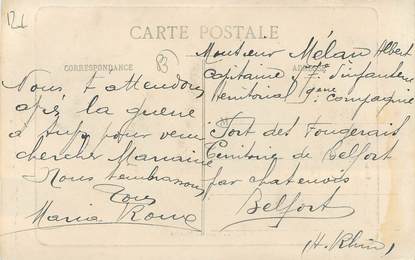 CARTE POSTALE
CORRESPONDANCE
ADRESSE
Nous t attendons
après la guerre
à pour venir
chercher Marraine
Nous t'embrassons
Tous
Maria Roux
Monsieur Mélan Albert
Capitaine 7e d'infanterie
territorial 9ème compagnie
Fort des Fougerais
Territoire de Belfort
par chatenois
Belfort
(H. Rhin)